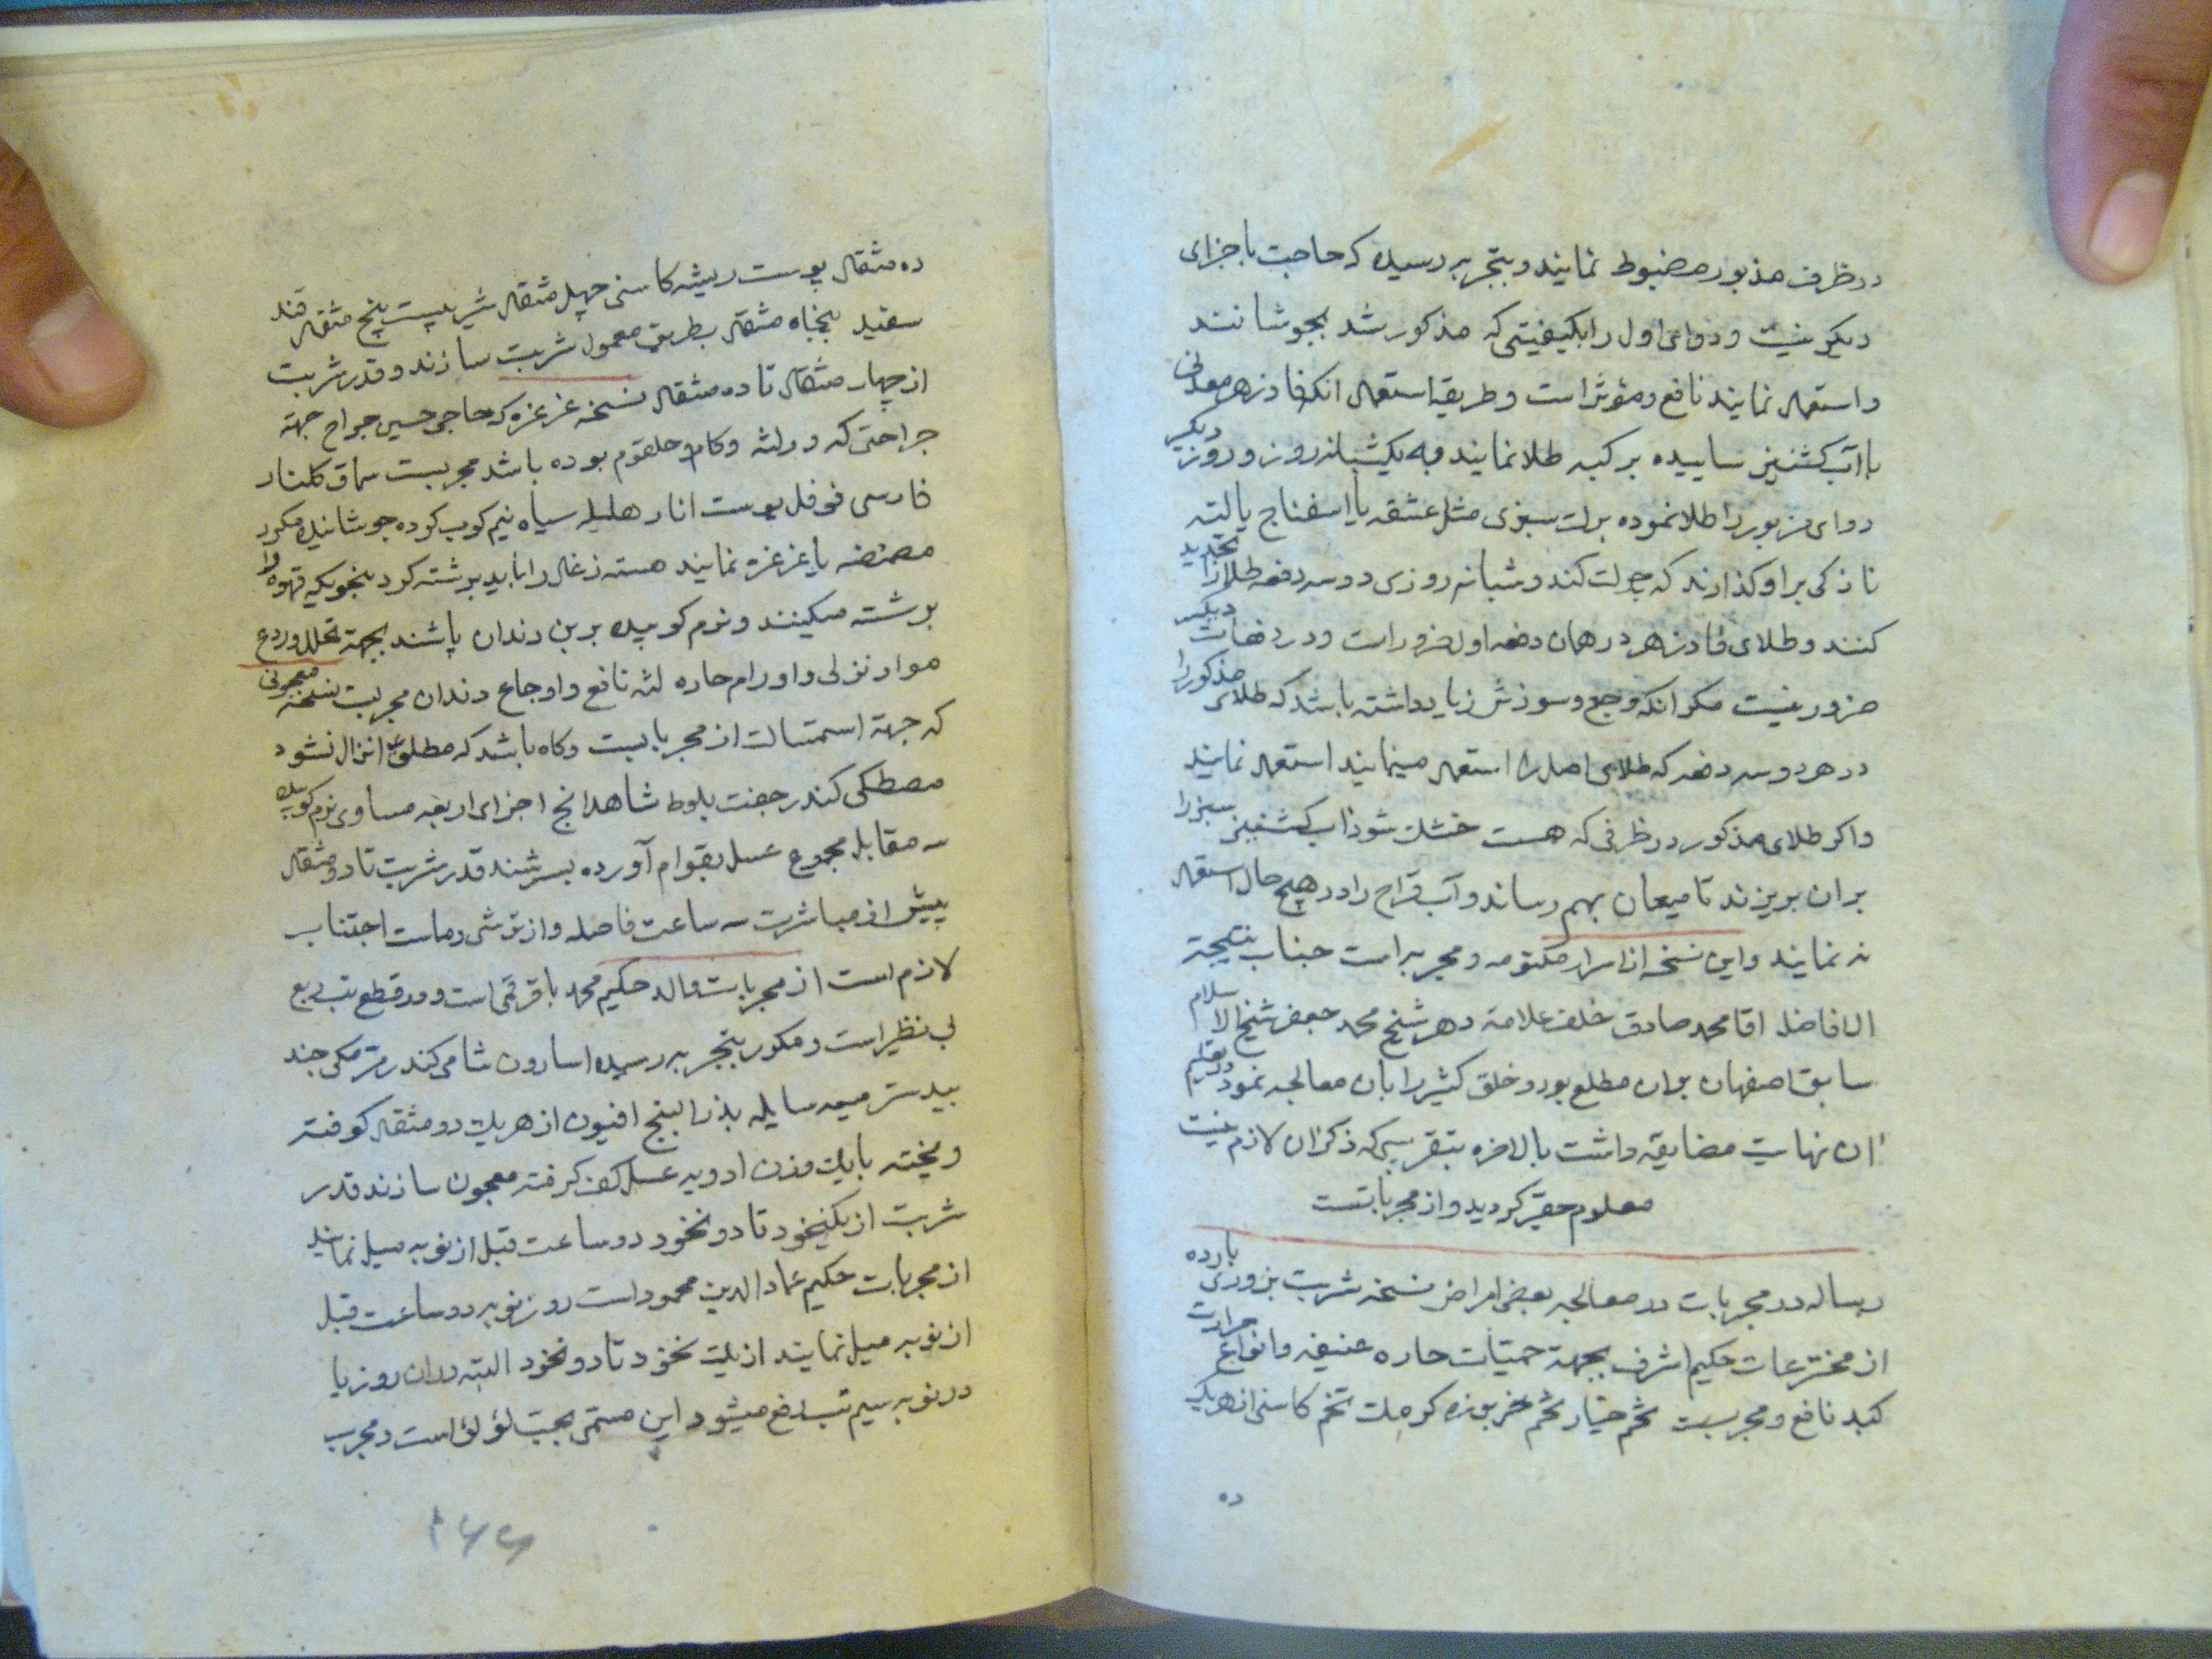 در ظرف مذبور مضبوط نمایند و بتجربه رسیده که حاجت باجزای
دیکر نیست و دوای اول را بکیفیتی که مذکور شد بجوشانند
و استعمال نمایند نافع و مؤثر است و طریقه استعمال انکه فادزهر معدنی
با آب کشنیز ساییده بر کبه طلا نمایند و به یکشبانه روز و روز دیکر
دوای مزبور را طلا نموده برک سبزی مثل عشقه یا اسفناج یا لته
نازکی بر او کذارند که چرک کند و شبانه روزی دو سه دفعه طلا را تجدید
کنند و طلای فادزهر در همان دفعه اول ضرور است و در دفعات دیکر
ضرور نیست مکر انکه وجع و سوزش زیاد داشته باشد که طلای مذکور را
در هر دو سه دفعه که طلای اصل را استعمال مینمایند استعمال نمایند
و اکر طلای مذکور در ظرفی که هست خشک شود آب کشنیز سبز را
بران بریزند تا میعان بهم رساند و آب قراح را در هیچ حال استعمال
نه نمایند و این نسخه از اسرار مکتومه و مجربه است جناب نتیجة
الافاضل اقا محمد صادق خلف علامة دهر شیخ محمد جعفر شیخ الاسلام
سابق اصفهان بران مطلع بود و خلق کثیر را بان معالجه نمود و در تعلیم
ان نهایت مضایقه داشت بالاخره بتقریبی که ذکر ان لازم نیست
معلوم حقیر کردید و از مجرباتست
رساله در مجربات در معالجه بعضی امراض نسخه شربت بزوری بارده
از مخترعات حکیم اشرف بجهة حمیّات حاره عنیفه و انواع حرارت
کبد نافع و مجربست تخم خیار تخم خربوزه کرمک تخم کاسنی از هر یک
ده
ده مثقال پوست ریشه کاسنی چهل مثقال شیر بیست پنج مثقال قند
سفید پنجاه مثقال بطریق معمول شربت سازند و قدر شربت
از چهار مثقال تا ده مثقال نسخه غرغره که حاجی حسین جراح جهة
جراحتی که در لثه و کام و حلقوم بوده باشد مجربست سماق کلنار
فارسی فوفل پوست انار هلیله سیاه نیم کوب کوده جوشانیده مکرر
مضمضه یا غرغره نمایند هسته زغال را باید برشته کرد بنحویکه قهوه را
برشته میکنند و نرم کوبیده بربن دندان پاشند بجهة تحلل و ردع
مواد نزلی و اورام حاره لثه نافع و اوجاع دندان مجربست نسخه معجونی
که جهة استمساک از مجرباتست و کاه باشد که مطلق انزال نشود
مصطکی کندر جفت بلوط شاهدانج اجزای اربعه مساوی نرم کوبیده
سه مقابل مجموع عسل بقوام آورده بسرشند قدر شربت تا دو مثقال
پیش از مباشرت سه ساعت فاصله و از ترشی و ماست اجتناب
لازم است از مجربات والد حکیم محمد باقر قمی است و در قطع تب ربع
بی نظیر است و مکرر بتجربه رسیده اسارون شامی کندر مر مکی جند
بیدستر میعه سایله بذر البنج افیون از هر یک دو مثقال کوفته
و بیخته با یک وزن ادویه عسل کف کرفته معجون سازند قدر
شربت از یکنخود تا دو نخود دو ساعت قبل از نوبه میل نمایند
از مجربات حکیم عماد الدین محمود است روز نوبه دو ساعت قبل
از نوبه میل نمایند از یک نخود تا دو نخود البته در ان روز یا
در نوبه سیم تب رفع میشود این مستمی بحب لؤلؤ است و مجرب